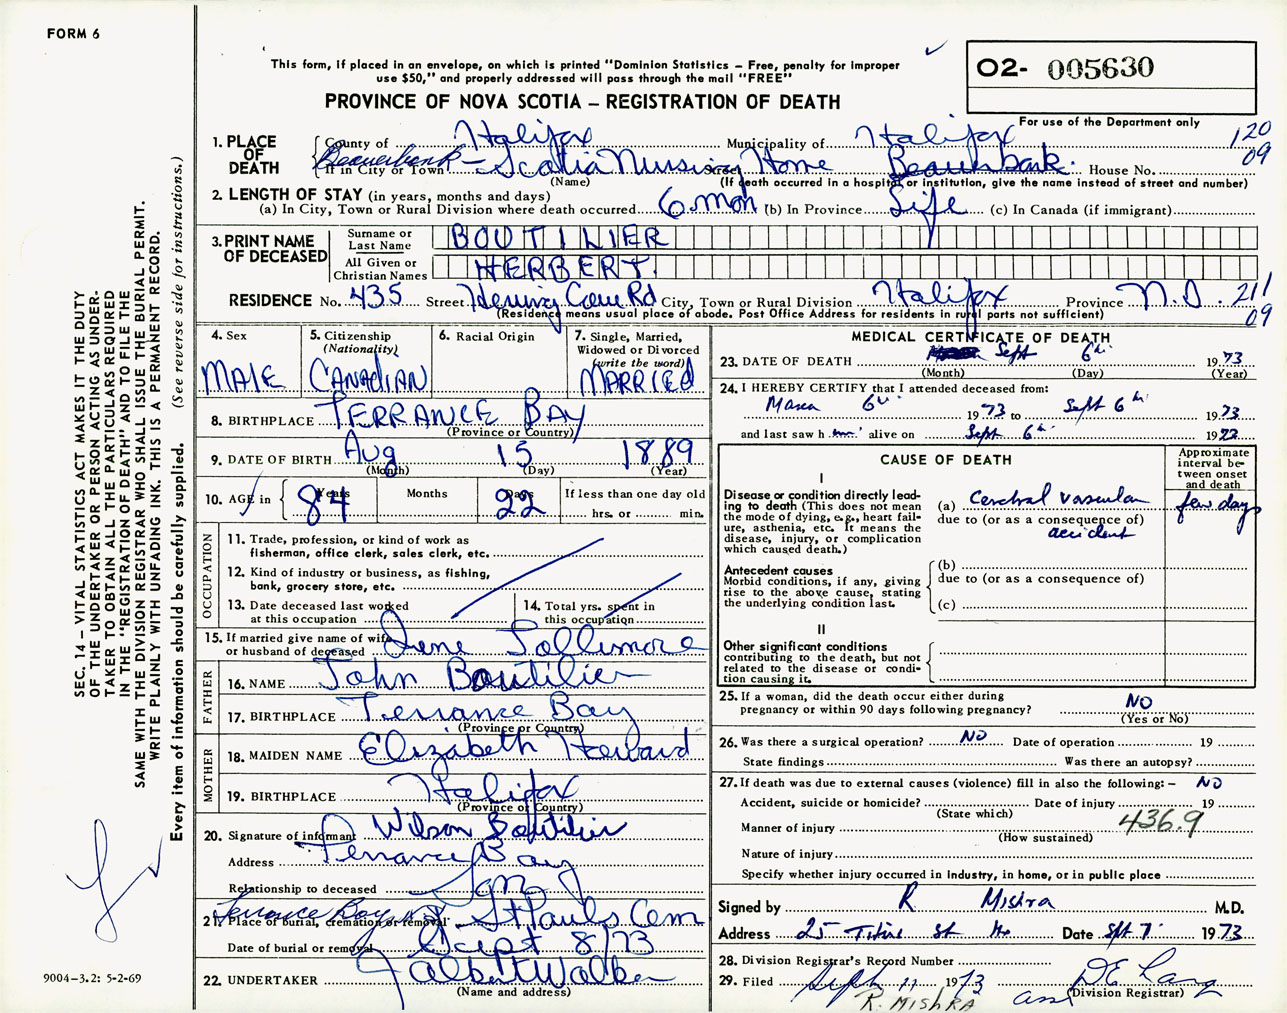 FORM 6
This form, if placed in an envelope, on which is printed "Dominion Statistics – Free, penalty for improper
use $50," and properly addressed will pass through the mail "FREE"
O2- 005630
PROVINCE OF NOVA SCOTIA – REGISTRATION OF DEATH
For use of the Department only
1. PLACE OF DEATH
County of Halifax Municipality of Halifax 120
Beaverbank – Scotia Nursing Home Beaverbank. 09
If in City or Town Street House No.
(Name) (If death occurred in a hospital or institution, give the name instead of street and number)
2. LENGTH OF STAY (in years, months and days)
(a) In City, Town or Rural Division where death occurred 6 mon (b) In Province Life (c) In Canada (if immigrant)
3. PRINT NAME OF DECEASED
Surname or Last Name BOUTILIER
All Given or Christian Names HERBERT
RESIDENCE No. 435 Street Herring Cove Rd City, Town or Rural Division Halifax Province N.S. 211
09
(Residence means usual place of abode. Post Office Address for residents in rural parts not sufficient)
4. Sex
MALE
5. Citizenship
(Nationality)
CANADIAN
6. Racial Origin
7. Single, Married,
Widowed or Divorced
(write the word)
MARRIED
8. BIRTHPLACE TERRANCE BAY
(Province or Country)
9. DATE OF BIRTH Aug 15 1889
(Month) (Day) (Year)
10. AGE in Years 84 Months Days 22 If less than one day old
hrs. or min.
OCCUPATION
11. Trade, profession, or kind of work as
fisherman, office clerk, sales clerk, etc.
12. Kind of industry or business, as fishing,
bank, grocery store, etc.
13. Date deceased last worked
at this occupation
14. Total yrs. spent in
this occupation
15. If married give name of wife
or husband of deceased Irene Jollimore
FATHER
16. NAME John Boutilier
17. BIRTHPLACE Terrance Bay
(Province or Country)
MOTHER
18. MAIDEN NAME Elizabeth Howard
19. BIRTHPLACE Halifax
(Province or Country)
20. Signature of informant Wilson Boutilier
Address Terrance Bay
Relationship to deceased Son
21. Place of burial, cremation or removal Terrance Bay St Pauls Cem
Date of burial or removal Sept 8/73
22. UNDERTAKER J Albert Walker
(Name and address)
MEDICAL CERTIFICATE OF DEATH
23. DATE OF DEATH Sept 6th 1973
(Month) (Day) (Year)
24. I HEREBY CERTIFY that I attended deceased from:
March 6th 1973 to Sept 6th 1973
and last saw h im alive on Sept 6th 1973
CAUSE OF DEATH
Approximate interval between onset and death
I
Disease or condition directly lead-
ing to death (This does not mean
the mode of dying, e.g., heart fail-
ure, asthenia, etc. It means the
disease, injury, or complication
which caused death.)
(a) Cerebral vascular few days
due to (or as a consequence of)
accident
Antecedent causes
Morbid conditions, if any, giving
rise to the above cause, stating
the underlying condition last.
(b)
due to (or as a consequence of)
(c)
II
Other significant conditions
contributing to the death, but not
related to the disease or condi-
tion causing it.
25. If a woman, did the death occur either during
pregnancy or within 90 days following pregnancy? NO
(Yes or No)
26. Was there a surgical operation? NO Date of operation 19
State findings Was there an autopsy?
27. If death was due to external causes (violence) fill in also the following:– NO
Accident, suicide or homicide? Date of injury 19
(State which)
Manner of injury 436.9
(How sustained)
Nature of injury
Specify whether injury occurred in industry, in home, or in public place
Signed by R Mishra M.D.
Address 25 St Date Sept 7 1973
28. Division Registrar's Record Number
29. Filed Sept 11 1973 D E Lang
(Division Registrar)
R. MISHRA ass
SEC. 14 – VITAL STATISTICS ACT MAKES IT THE DUTY
OF THE UNDERTAKER OR PERSON ACTING AS UNDER-
TAKER TO OBTAIN ALL THE PARTICULARS REQUIRED
IN THE "REGISTRATION OF DEATH" AND TO FILE THE
SAME WITH THE DIVISION REGISTRAR WHO SHALL ISSUE THE BURIAL PERMIT.
WRITE PLAINLY WITH UNFADING INK. THIS IS A PERMANENT RECORD.
Every item of information should be carefully supplied. (See reverse side for instructions.)
9004–3.2: 5-2-69